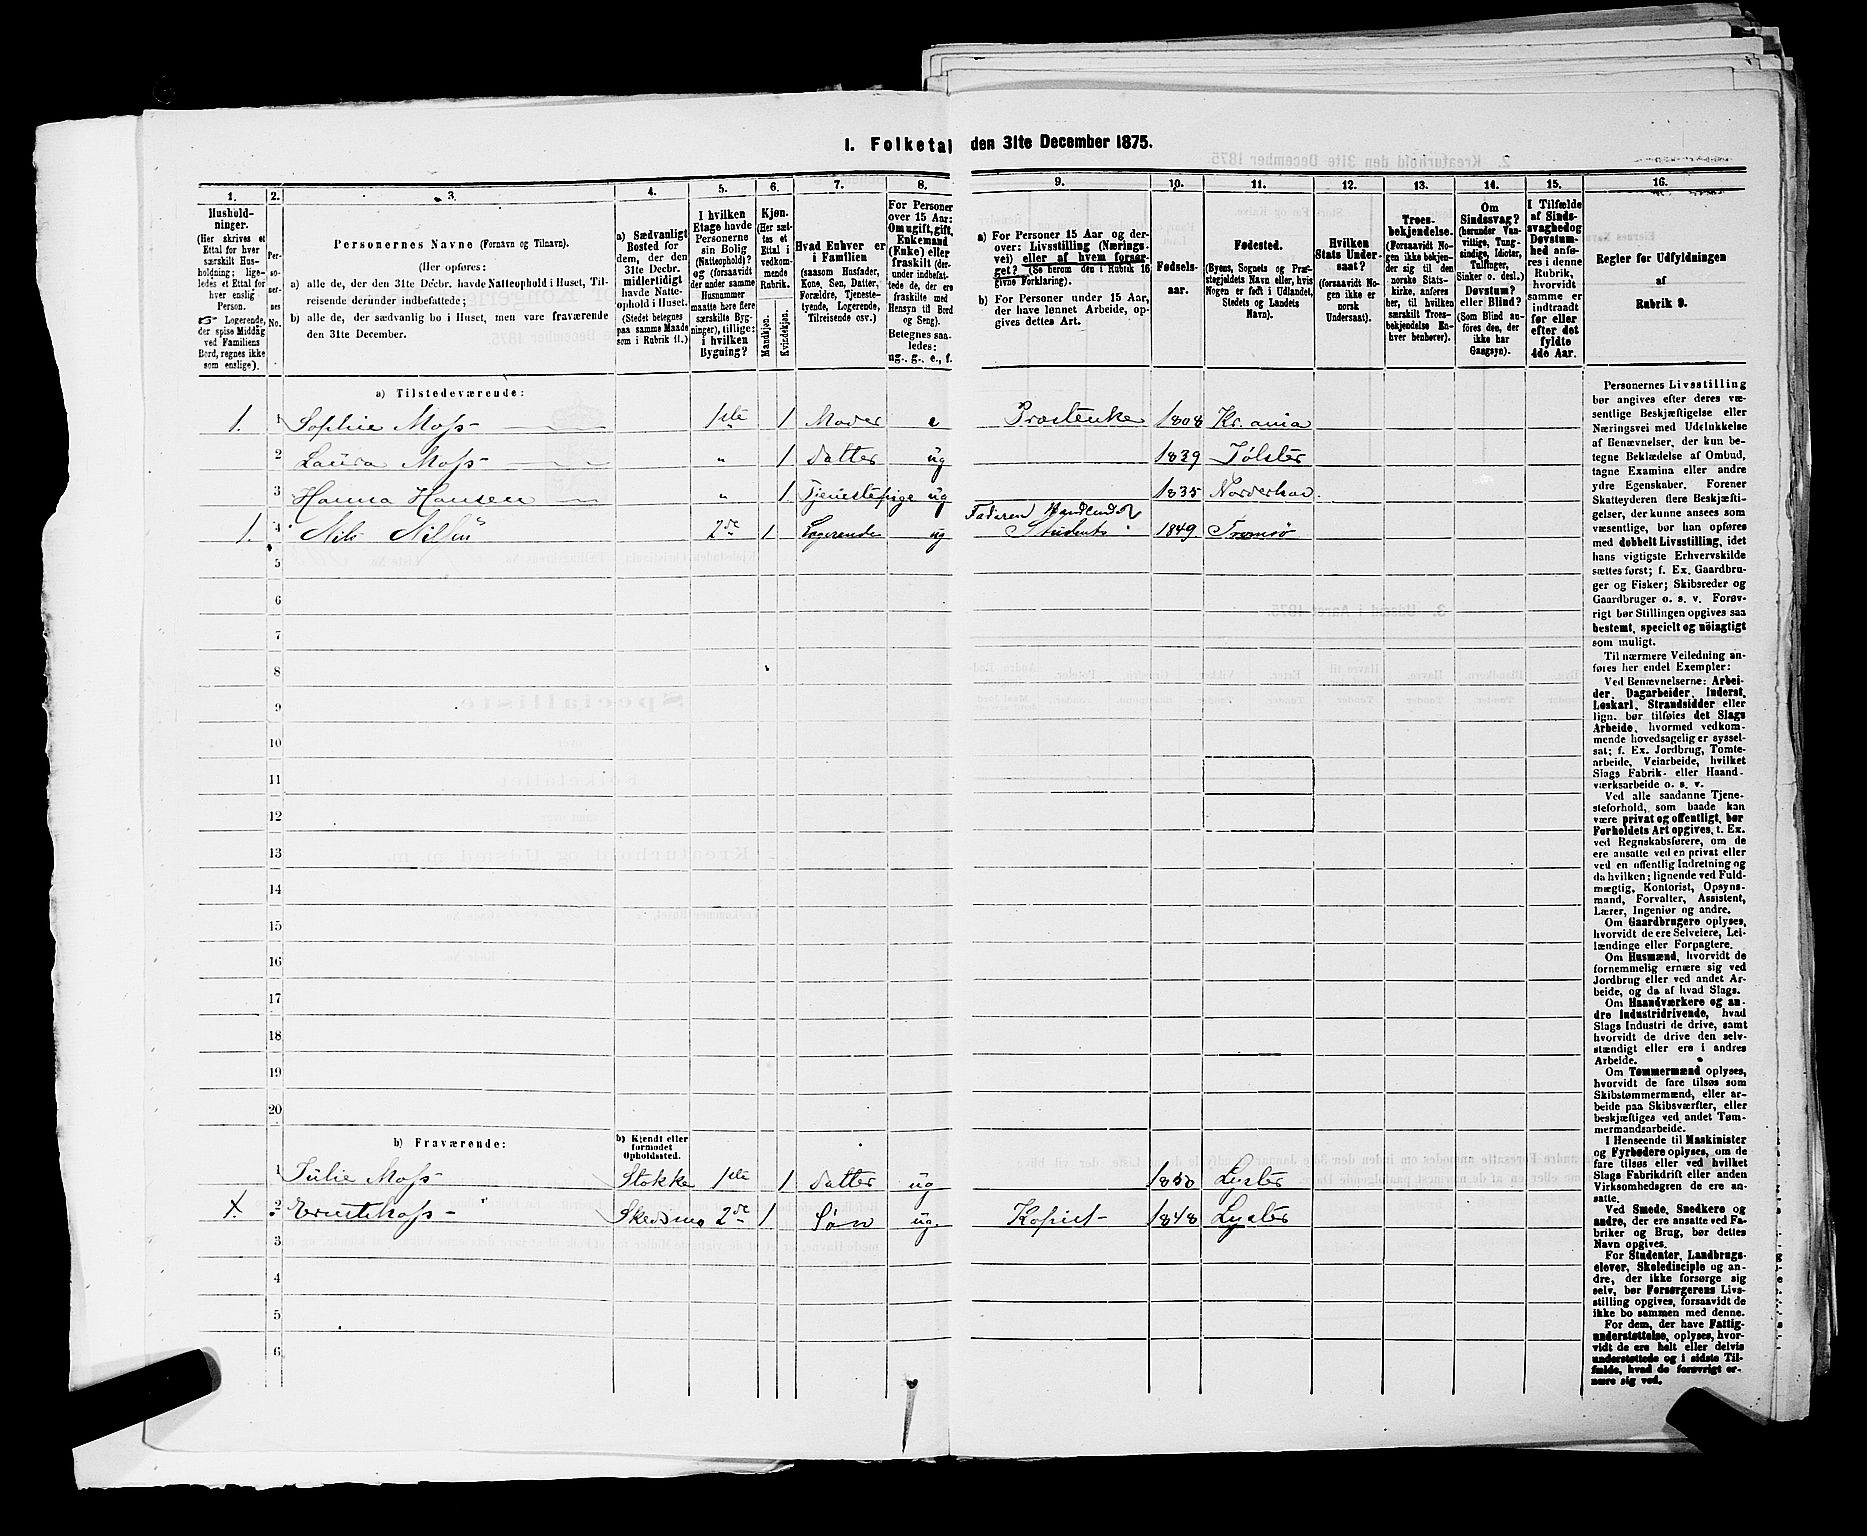 1. Folketal den 31te December 1875.
1. 2. 3. 4. 5. 6. 7. 8. 9. 10. 11. 12. 13. 14. 15. 16.
Hushold-
ninger.
(Her skrives et
Ettal for hver
særskilt Hus-
holdning; lige-
ledes et Ettal for
hver enslig
Person.
Logerende,
der spise Middag
ved Familiens
Bord, regnes ikke
som enslige).
Per-
so-
ner-
nes
No.
Personernes Navne (Fornavn og Tilnavn).
(Her opføres:
a) alle de, der den 31te Decbr. havde Natteophold i Huset, Til-
reisende derunder indbefattede;
b) alle de, der sædvanlig bo i Huset, men vare fraværende
den 31te December.
a) Sædvanligt
Bosted for
dem, der den
31te Decbr.
midlertidigt
havde Natte-
ophold i Huset.
(Stedet betegnes
paa samme Maade
som i Rubrik 11.)
I hvilken
Etage havde
Personerne
sin Bolig
(Natteophold)?
og (forsaavidt
der under samme
Husnummer
maatte høre flere
særskilte Byg-
ninger), tillige:
i hvilken
Bygning?
Kjøn.
(Her sæt-
tes et
Ettal i
vedkom-
mende
Rubrik.
Mandkjøn.
Kvindekjøn.
Hvad Enhver er
i Familien
(saasom Husfader,
Kone, Søn, Datter,
Forældre, Tjeneste-
tyende, Logerende,
Tilreisende osv.)
For Personer
over 15 Aar:
Om ugift, gift,
Enkemand
(Enke) eller
fraskilt (der-
under indbefat-
tede de, der ere
fraskilte med
Hensyn til Bord
og Seng).
Betegnes saa-
ledes:
ug., g., e., f.
a) For Personer 15 Aar og der-
over: Livsstilling (Nærings-
vei) eller af hvem forsør-
get? (Se herom den i Rubrik 16
givne Forklaring).
b) For Personer under 15 Aar,
der have lønnet Arbeide, op-
gives dettes Art.
Fødsels-
aar.
Fødested.
(Byens, Sognets og Præ-
stegjeldets Navn eller, hvis
Nogen er født i Udlandet,
Stedets og Landets
Navn).
Hvilken
Stats Under-
saat?
(forsaavidt No-
gen ikke er
norsk
Undersaat).
Troes-
bekjendelse.
(Forsaavidt No-
gen ikke bekjen-
der sig til den
norske Stats-
kirke, anføres
her, til hvilken
særskilt Troes-
bekjendelse En-
hver henhører).
Om
Sindssvag?
(herunder Vaa-
vittige, Tung-
sindige, Idioter,
Tullinger,
Sinker o. desl.)
Døvstum?
eller Blind?
(Som Blind an-
føres den, der
ikke har
Gangsyn).
I Tilfælde
af Sinds-
svaghed og
Døvstum-
hed anfø-
res i denne
Rubrik,
hvorvidt
samme er
indtraadt
før eller
efter det
fyldte
4de Aar.
Regler for Udfyldningen
af
Rubrik 9.
a) Tilstedeværende:
1. 1 Sophie Moss 1ste 1 Moder e Prostenke 1808 Kr.ania
2 Laura Moss „ 1 Datter ug 1839 Jølster
3 Hanna Hansen „ 1 Tjenestepige ug 1835 Norderhov.
1. 4 Nils Nilsen 2de 1 Logerende ug Faderen Handlende Student 1849. Tromsø
5
6
7
8
9
10
11
12
13
14
15
16
17
18
19
20
b) Fraværende:
b) Kjendt eller
formodet
Opholdssted.
1 Julie Moss Stokke 1ste 1 Datter ug 1850 Lyster
2 Moss Skedsmo 2de 1 Søn ug. Kopist 1848 Lyster
3
4
5
6
Personernes Livsstilling
bør angives efter deres væ-
sentlige Beskjæftigelse eller
Næringsvei med Udelukkelse
af Benævnelser, der kun be-
tegne Beklædelse af Ombud,
tagne Examina eller andre
ydre Egenskaber. Forener
Skatteyderen flere Beskjæfti-
gelser, der kunne ansees som
væsentlige, bør han opføres
med dobbelt Livsstilling, idet
hans vigtigste Erhvervskilde
sættes først; f. Ex. Gaardbru-
ger og Fisker; Skibsreder og
Gaardbruger o. s. v. Forøv-
rigt bør Stillingen opgives saa
bestemt, specielt og nöiagtigt
som muligt.
Til nærmere Veiledning an-
føres her endel Exempler:
Ved Benævnelserne: Arbei-
der, Dagarbeider, Inderst,
Løskarl, Strandsidder eller
lign. bør tilføies det Slags
Arbeide, hvormed vedkom-
mende hovedsagelig er syssel-
sat; f. Ex. Jordbrug, Tomte-
arbeide, Veiarbeide, hvilket
Slags Fabrik- eller Haand-
værksarbeide o. s. v.
Ved alle saadanne Tjene-
steforhold, som baade kan
være privat og offentligt, bør
Forholdets Art opgives, t. Ex.
ved Regnskabsførere, om de
ere ansatte ved en privat eller
ved en offentlig Indretning og
da hvilken; lignende ved Fuld-
mægtig, Kontorist, Opsyns-
mand, Forvalter, Assistent,
Lærer, Ingeniør og andre.
Om Gaardbrugere oplyses,
hvorvidt de ere Selveiere, Lei-
lændinge eller Forpagtere.
Om Husmænd, hvorvidt de
fornemmelig ernære sig ved
Jordbrug eller ved andet Ar-
beide, og da af hvad Slags.
Om Haandværkere og an-
dre Industridrivende, hvad
Slags Industri de drive, samt
hvorvidt de drive den selv-
stændigt eller ere i andres
Arbeide.
Om Tømmermænd oplyses,
hvorvidt de fare tilsøs som
Skibstømmermænd, eller ar-
beide paa Skibsværfter, eller
beskjæftiges ved andet Tøm-
mermandsarbeide.
I Henseende til Maskinister
og Fyrbødere oplyses, om de
fare tilsøs eller ved hvilket
Slags Fabrikdrift eller anden
Virksomhedsgren de ere an-
satte.
Ved Smede, Snedkere og
andre, der ere ansatte ved Fa-
briker og Brug, bør dettes
Navn opgives.
For Studenter, Landbrugs-
elever, Skoledisciple og an-
dre, der ikke forsørge sig
selv, bør Forsørgerens Livs-
stilling opgives, forsaavidt de
ikke bo sammen med denne.
For dem, der have Fattig-
understøttelse, oplyses, hvor-
vidt de ere helt eller delvis
understøttede og i sidste Til-
fælde, hvad de forøvrigt er-
nære sig ved.